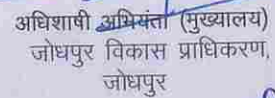 अधिशाषी अभियंता (मुख्यालय)
जोधपुर विकास प्राधिकरण,
जोधपुर